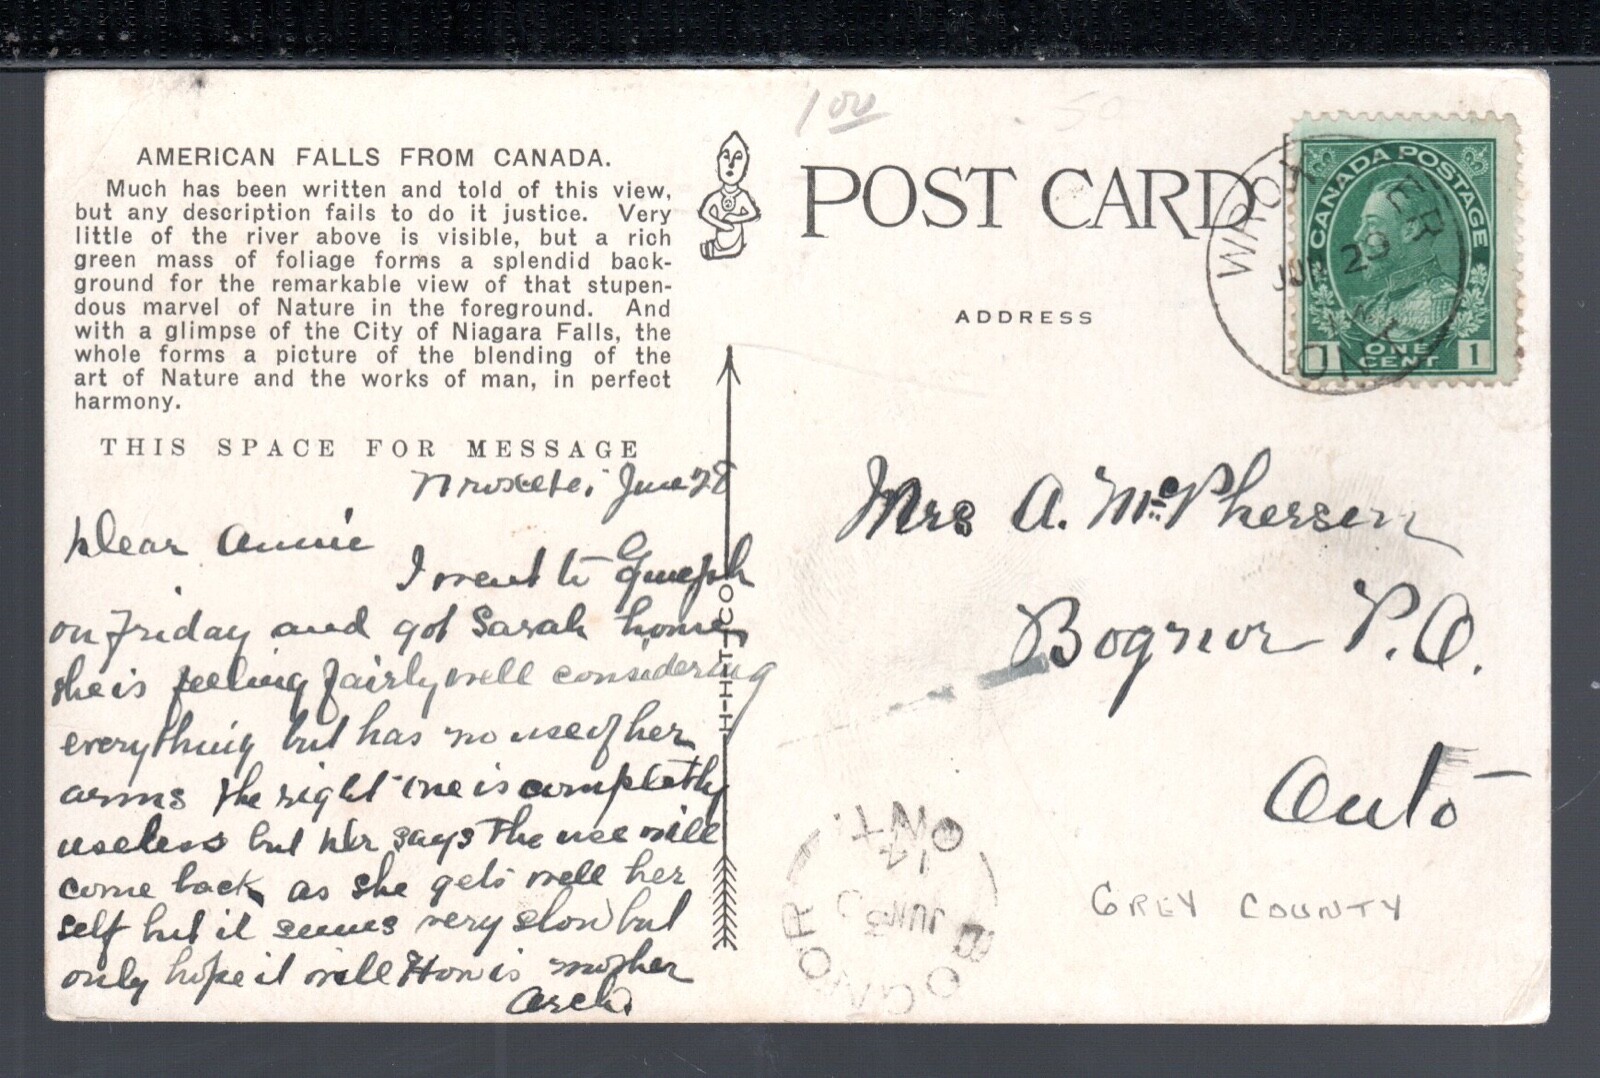 AMERICAN FALLS FROM CANADA.
Much has been written and told of this view,
but any description fails to do it justice. Very
little of the river above is visible, but a rich
green mass of foliage forms a splendid back-
ground for the remarkable view of that stupen-
dous marvel of Nature in the foreground. And
with a glimpse of the City of Niagara Falls, the
whole forms a picture of the blending of the
art of Nature and the works of man, in perfect
harmony.
THIS SPACE FOR MESSAGE
Wroxeter June 28
Dear Annie
I went to Guelph
on Friday and got Sarah home
she is feeling fairly well considering
everything but has no use of her
arms the right one is completly
useless but Dr says the use will
come back as she gets well her
self but it seems very slow but
only hope it will How is mother
Arch.
H-H-T-CO
1 00
50
POST CARD
ADDRESS
WROXETER
JU 29
ONT
CANADA POSTAGE
1 ONE CENT 1
Mrs A. McPherson
Bognor P.O.
Ont
GREY COUNTY
BOGNOR
JUN 3
14
ONT.